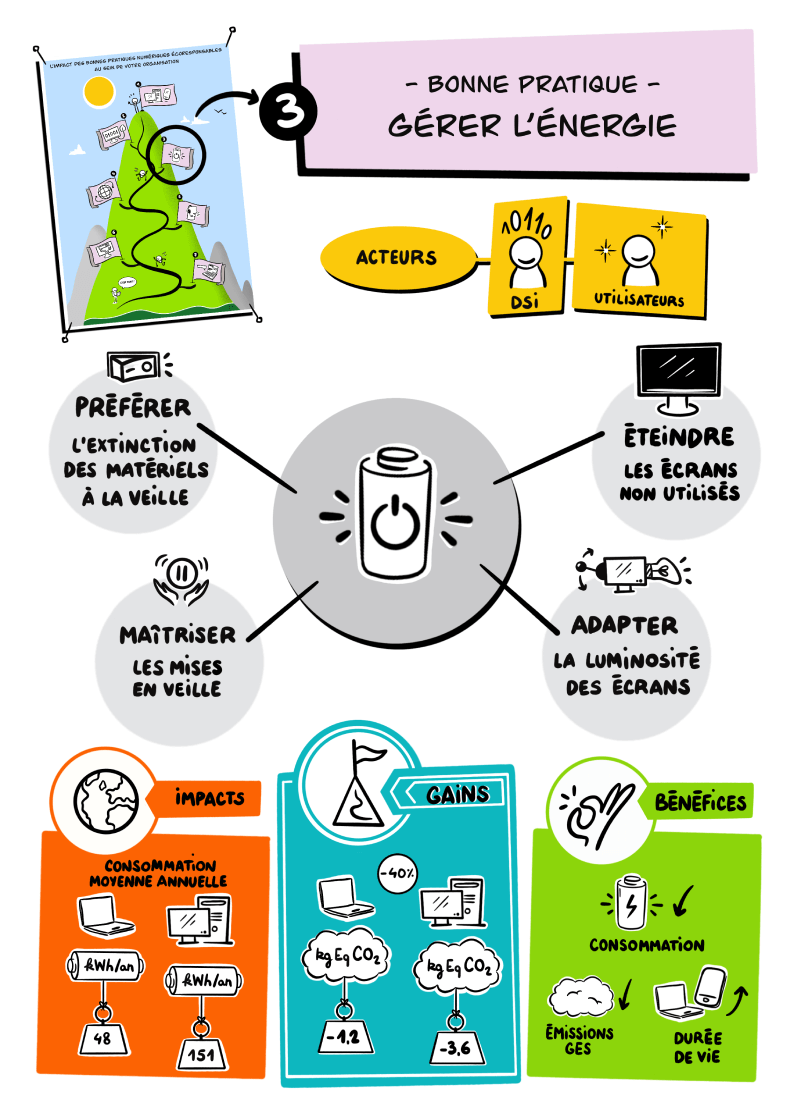 L'IMPACT DES BONNES PRATIQUES NUMÉRIQUES ÉCORESPONSABLES
AU SEIN DE VOTRE ORGANISATION
3
- BONNE PRATIQUE -
GÉRER L'ÉNERGIE
ACTEURS
10110
DSi
UTILISATEURS
PRÉFÉRER
L'EXTINCTION
DES MATÉRIELS
À LA VEILLE
ÉTEINDRE
LES ÉCRANS
NON UTILISÉS
MAÎTRISER
LES MISES
EN VEILLE
ADAPTER
LA LUMINOSITÉ
DES ÉCRANS
IMPACTS
CONSOMMATION
MOYENNE ANNUELLE
kWh/an
kWh/an
48
151
GAINS
-40%
kg Eq CO2
kg Eq CO2
-1,2
-3,6
BÉNÉFICES
CONSOMMATION
ÉMISSIONS
GES
DURÉE
DE VIE